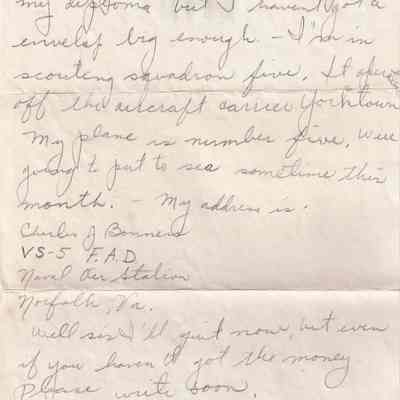 my diploma but I haven't got a
envelop big enough. - I'm in
scouting squadron five. It operates
off the aircraft carrier Yorktown
My plane is number five. Were
going to put to sea sometime this
month. - My address is.
Charles J Bonners
VS-5 F.A.D.
Naval Air Station
Norfolk, Va.
Well sis I'll quit now, but even
if you haven't got the money
Please write soon.